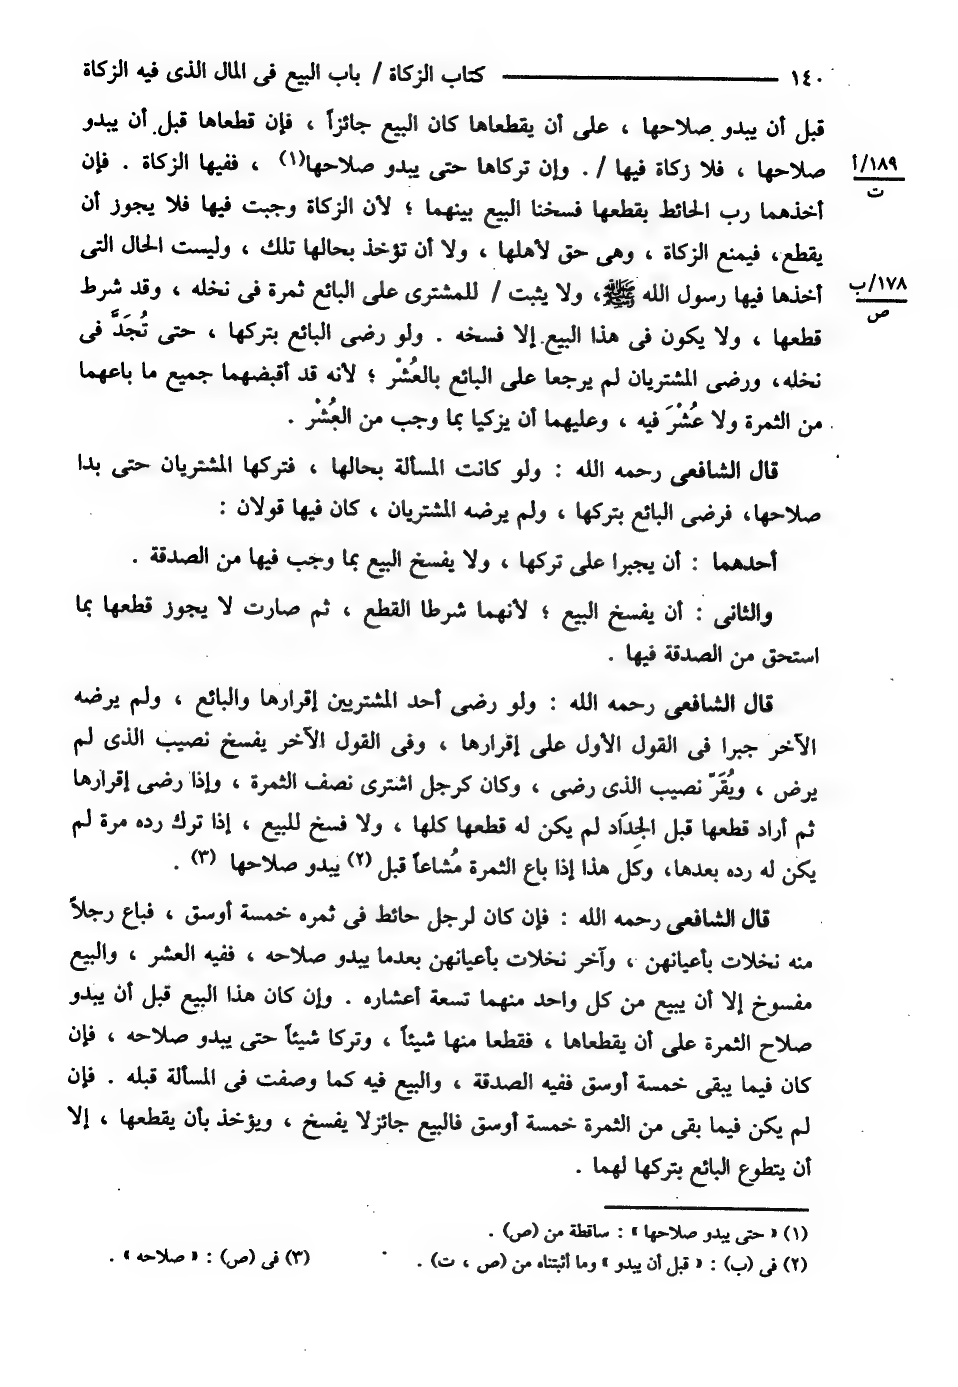 ١٤٠ ــــــــــــــــــــــــ كتاب الزكاة / باب البيع فى المال الذى فيه الزكاة
قبل أن يبدو صلاحها ، على أن يقطعاها كان البيع جائزاً ، فإن قطعاها قبل أن يبدو
صلاحها ، فلا زكاة فيها / . وإن تركاها حتى يبدو صلاحها(١) ، ففيها الزكاة . فإن
١٨٩/أ
ت
أخذهما رب الحائط بقطعها فسخنا البيع بينهما ؛ لأن الزكاة وجبت فيها فلا يجوز أن
يقطع، فيمنع الزكاة ، وهى حق لأهلها ، ولا أن تؤخذ بحالها تلك ، وليست الحال التى
أخذها فيها رسول الله ﷺ، ولا يثبت / للمشترى على البائع ثمرة فى نخله ، وقد شرط
١٧٨/ب
ص
قطعها ، ولا يكون فى هذا البيع إلا فسخه . ولو رضى البائع بتركها ، حتى تُجَدَّ فى
نخله، ورضى المشتريان لم يرجعا على البائع بالعُشْر ؛ لأنه قد أقبضهما جميع ما باعهما
من الثمرة ولا عُشْرَ فيه ، وعليهما أن يزكيا بما وجب من العُشْر .
قال الشافعى رحمه الله : ولو كانت المسألة بحالها ، فتركها المشتريان حتى بدا
صلاحها، فرضى البائع بتركها ، ولم يرضه المشتريان ، كان فيها قولان :
أحدهما : أن يجبرا على تركها ، ولا يفسخ البيع بما وجب فيها من الصدقة .
والثانى : أن يفسخ البيع ؛ لأنهما شرطا القطع ، ثم صارت لا يجوز قطعها بما
استحق من الصدقة فيها .
قال الشافعى رحمه الله : ولو رضى أحد المشتريين إقرارها والبائع ، ولم يرضه
الآخر جبرا فى القول الأول على إقرارها ، وفى القول الآخر يفسخ نصيب الذى لم
يرض ، ويُقَرّ نصيب الذى رضى ، وكان كرجل اشترى نصف الثمرة ، وإذا رضى إقرارها
ثم أراد قطعها قبل الجِدَاد لم يكن له قطعها كلها ، ولا فسخ للبيع ، إذا ترك رده مرة لم
يكن له رده بعدها، وكل هذا إذا باع الثمرة مُشاعاً قبل (٢) يبدو صلاحها (٣) .
قال الشافعى رحمه الله : فإن كان لرجل حائط فى ثمره خمسة أوسق ، فباع رجلاً
منه نخلات بأعيانهن ، وآخر نخلات بأعيانهن بعدما يبدو صلاحه ، ففيه العشر ، والبيع
مفسوخ إلا أن يبيع من كل واحد منهما تسعة أعشاره . وإن كان هذا البيع قبل أن يبدو
صلاح الثمرة على أن يقطعاها ، فقطعا منها شيئاً ، وتركا شيئاً حتى يبدو صلاحه ، فإن
كان فيما يبقى خمسة أوسق ففيه الصدقة ، والبيع فيه كما وصفت فى المسألة قبله . فإن
لم يكن فيما بقى من الثمرة خمسة أوسق فالبيع جائز لا يفسخ ، ويؤخذ بأن يقطعها ، إلا
أن يتطوع البائع بتركها لهما .
(١) « حتى يبدو صلاحها » : ساقطة من (ص) .
(٢) فى (ب) : « قبل أن يبدو » وما أثبتناه من (ص ، ت) . (٣) فى (ص) : « صلاحه » .